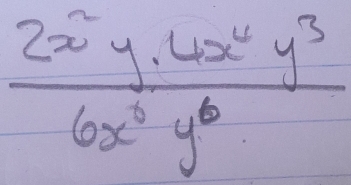 2x² y . 4x⁴ y³
6x⁶ y⁶